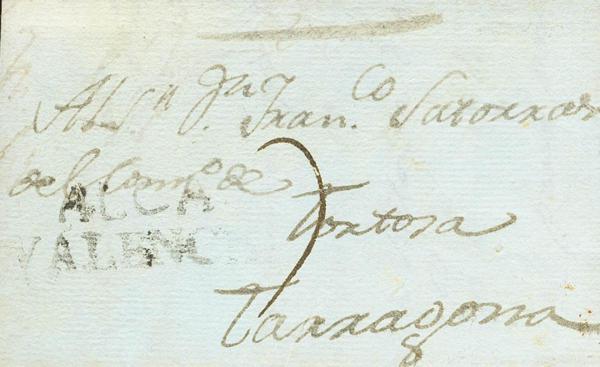 Al S.ⁿ Dⁿ Fran.ᶜᵒ Satorras
del Com.º de
ALCA
VALENC
Tortosa
Tarragona